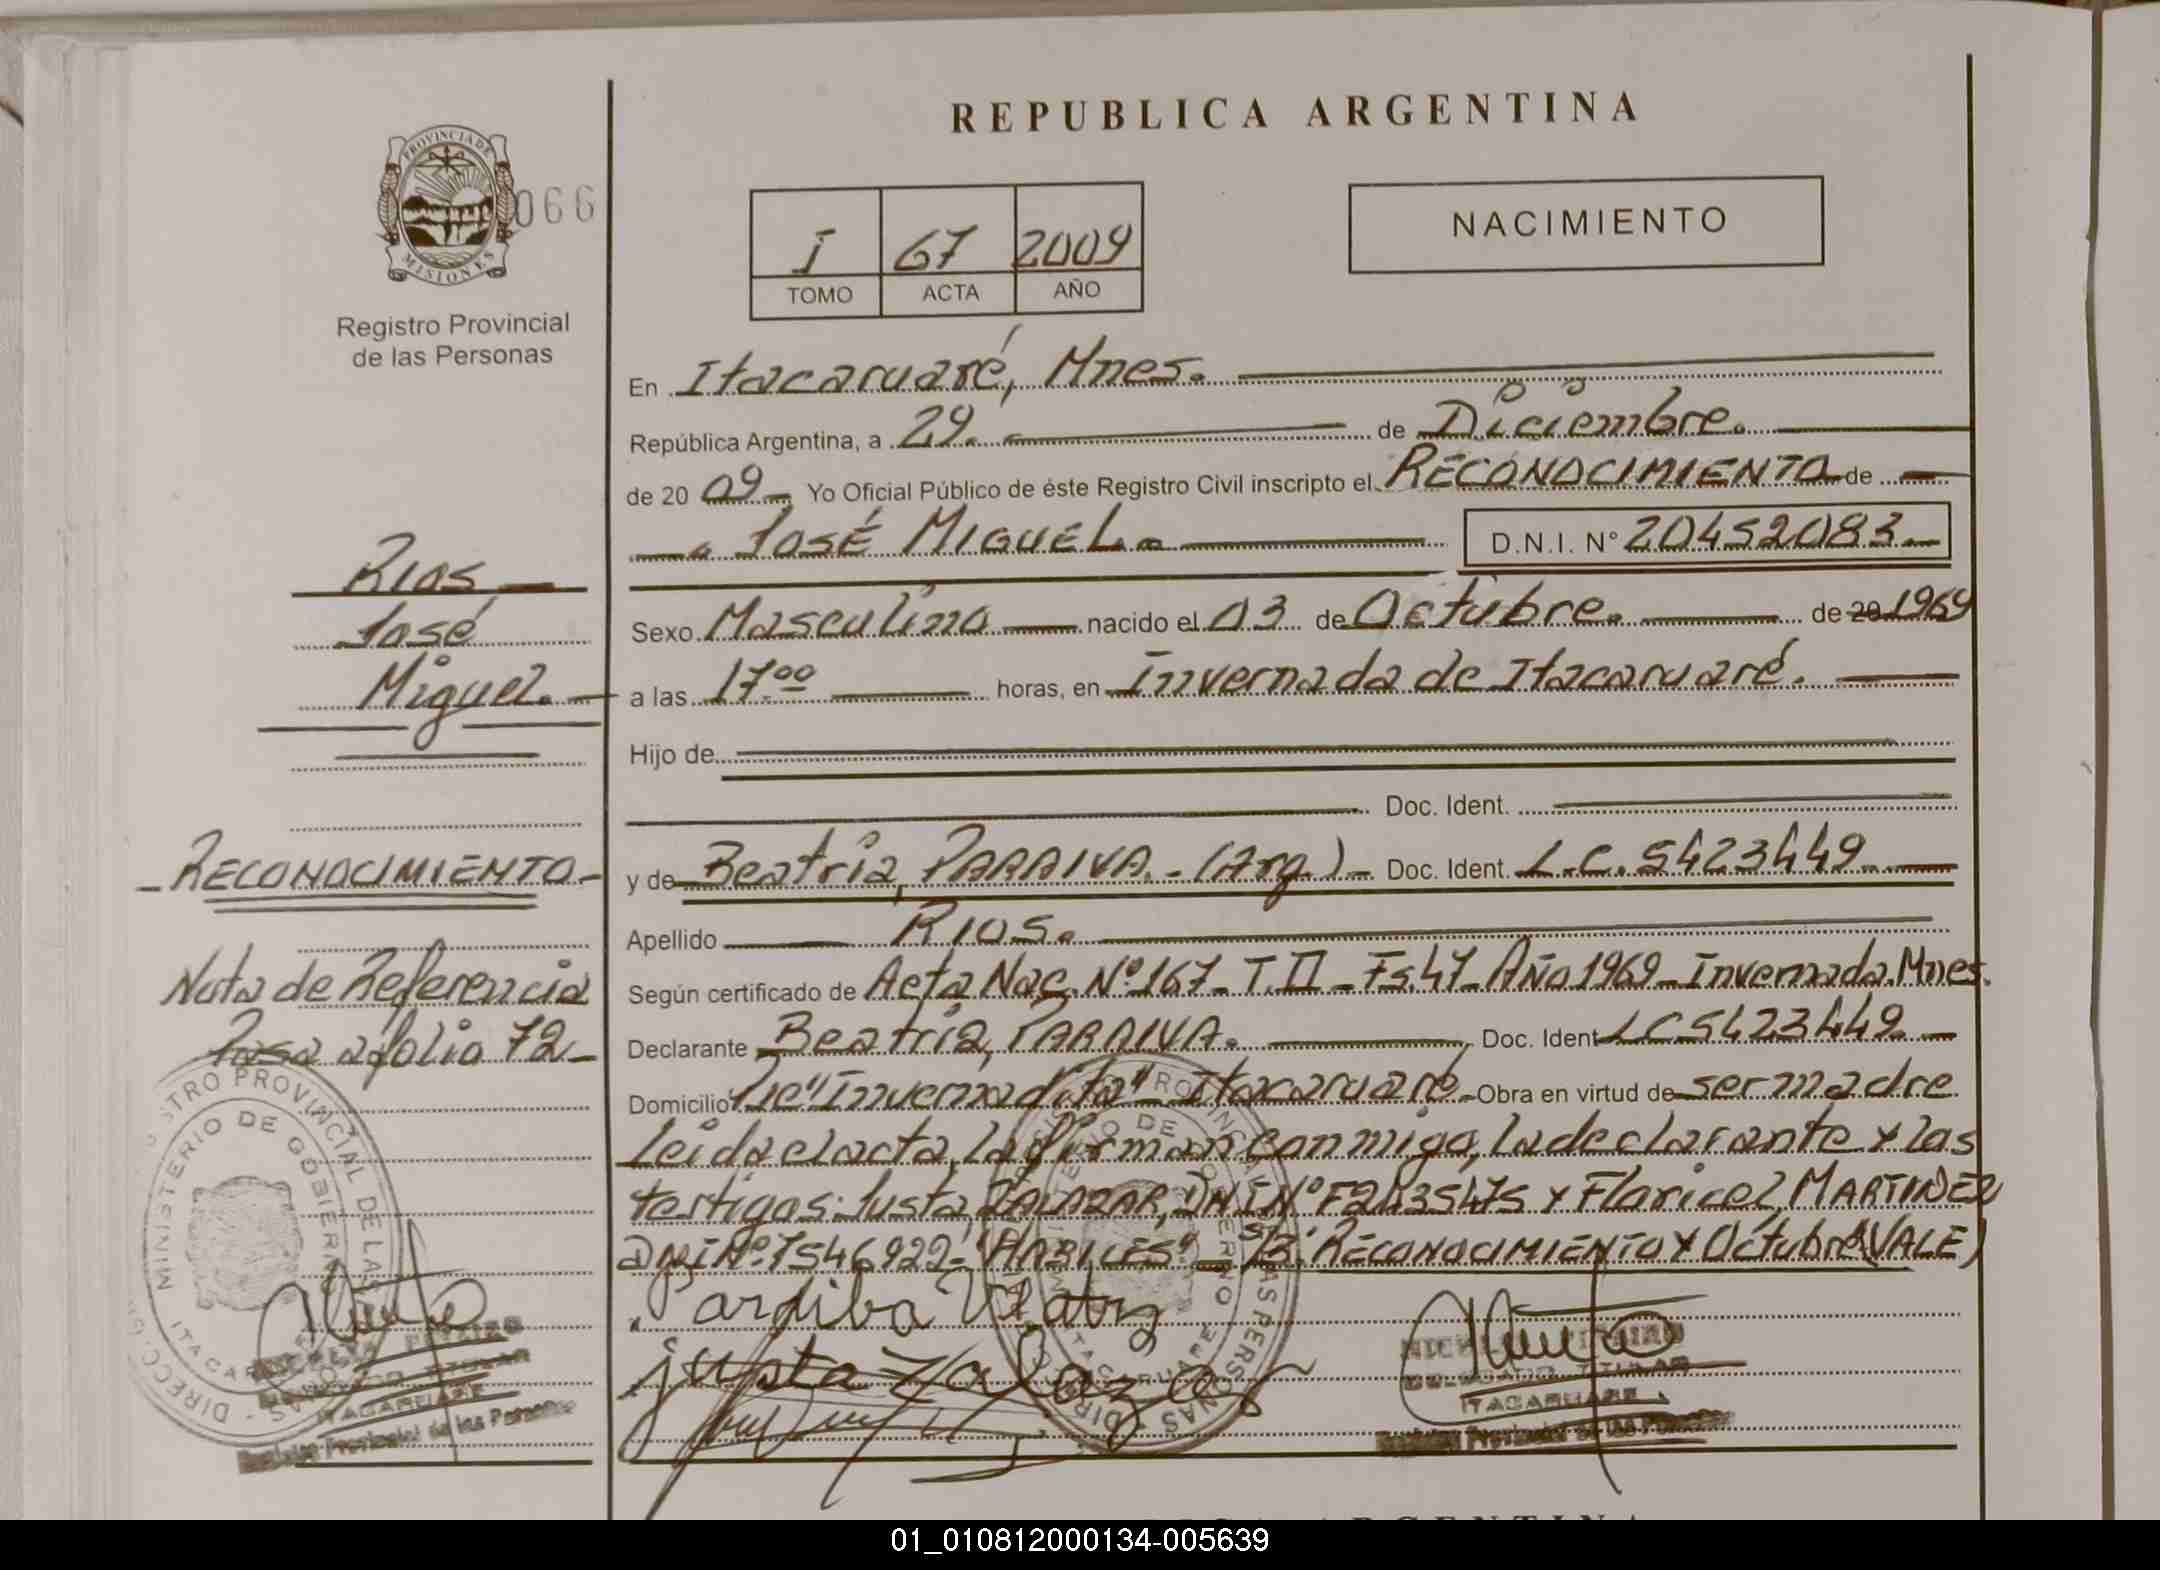 REPUBLICA ARGENTINA
PROVINCIA DE
MISIONES
066
Registro Provincial
de las Personas
I 67 2009
TOMO ACTA AÑO
NACIMIENTO
En Itacaruaré, Mnes.
República Argentina, a 29. de Diciembre.
de 20 09 Yo Oficial Público de éste Registro Civil inscripto el RECONOCIMIENTO de
José MIGUEL. D.N.I. N° 20452083
Rios
José
Miguel.
Sexo Masculino nacido el 03 de Octubre. de 20 1969
a las 17.00 horas, en Invernada de Itacaruaré.
Hijo de
Doc. Ident.
RECONOCIMIENTO
y de Beatriz, PARAIVA. (Arg.) Doc. Ident. L.C. 5423449
Apellido RIOS.
Nota de Referencia
Pasa a folio 72
Según certificado de Acta Nac. N° 167 - T. II - Fs. 47 - Año 1969 - Invernada. Mnes.
Declarante Beatriz, PARAIVA. Doc. Ident LC5423449.
Domicilio "Invernadita" Itacaruaré - Obra en virtud de ser madre
leida el acta, la firman conmigo, la declarante y las
testigos: Justa, ZALAZAR, DNI N° F2435475 y Floricel, MARTINEZ
DNI N° 7546922 - S/B: RECONOCIMIENTO y Octubre (VALE)
justa Zalazar
REGISTRO PROVINCIAL DE LAS PERSONAS
MINISTERIO DE GOBIERNO
ITACARUARE
DELEGADO TITULAR
ITACARUARE
Registro Provincial de las Personas
ARGENTINA
01_010812000134-005639